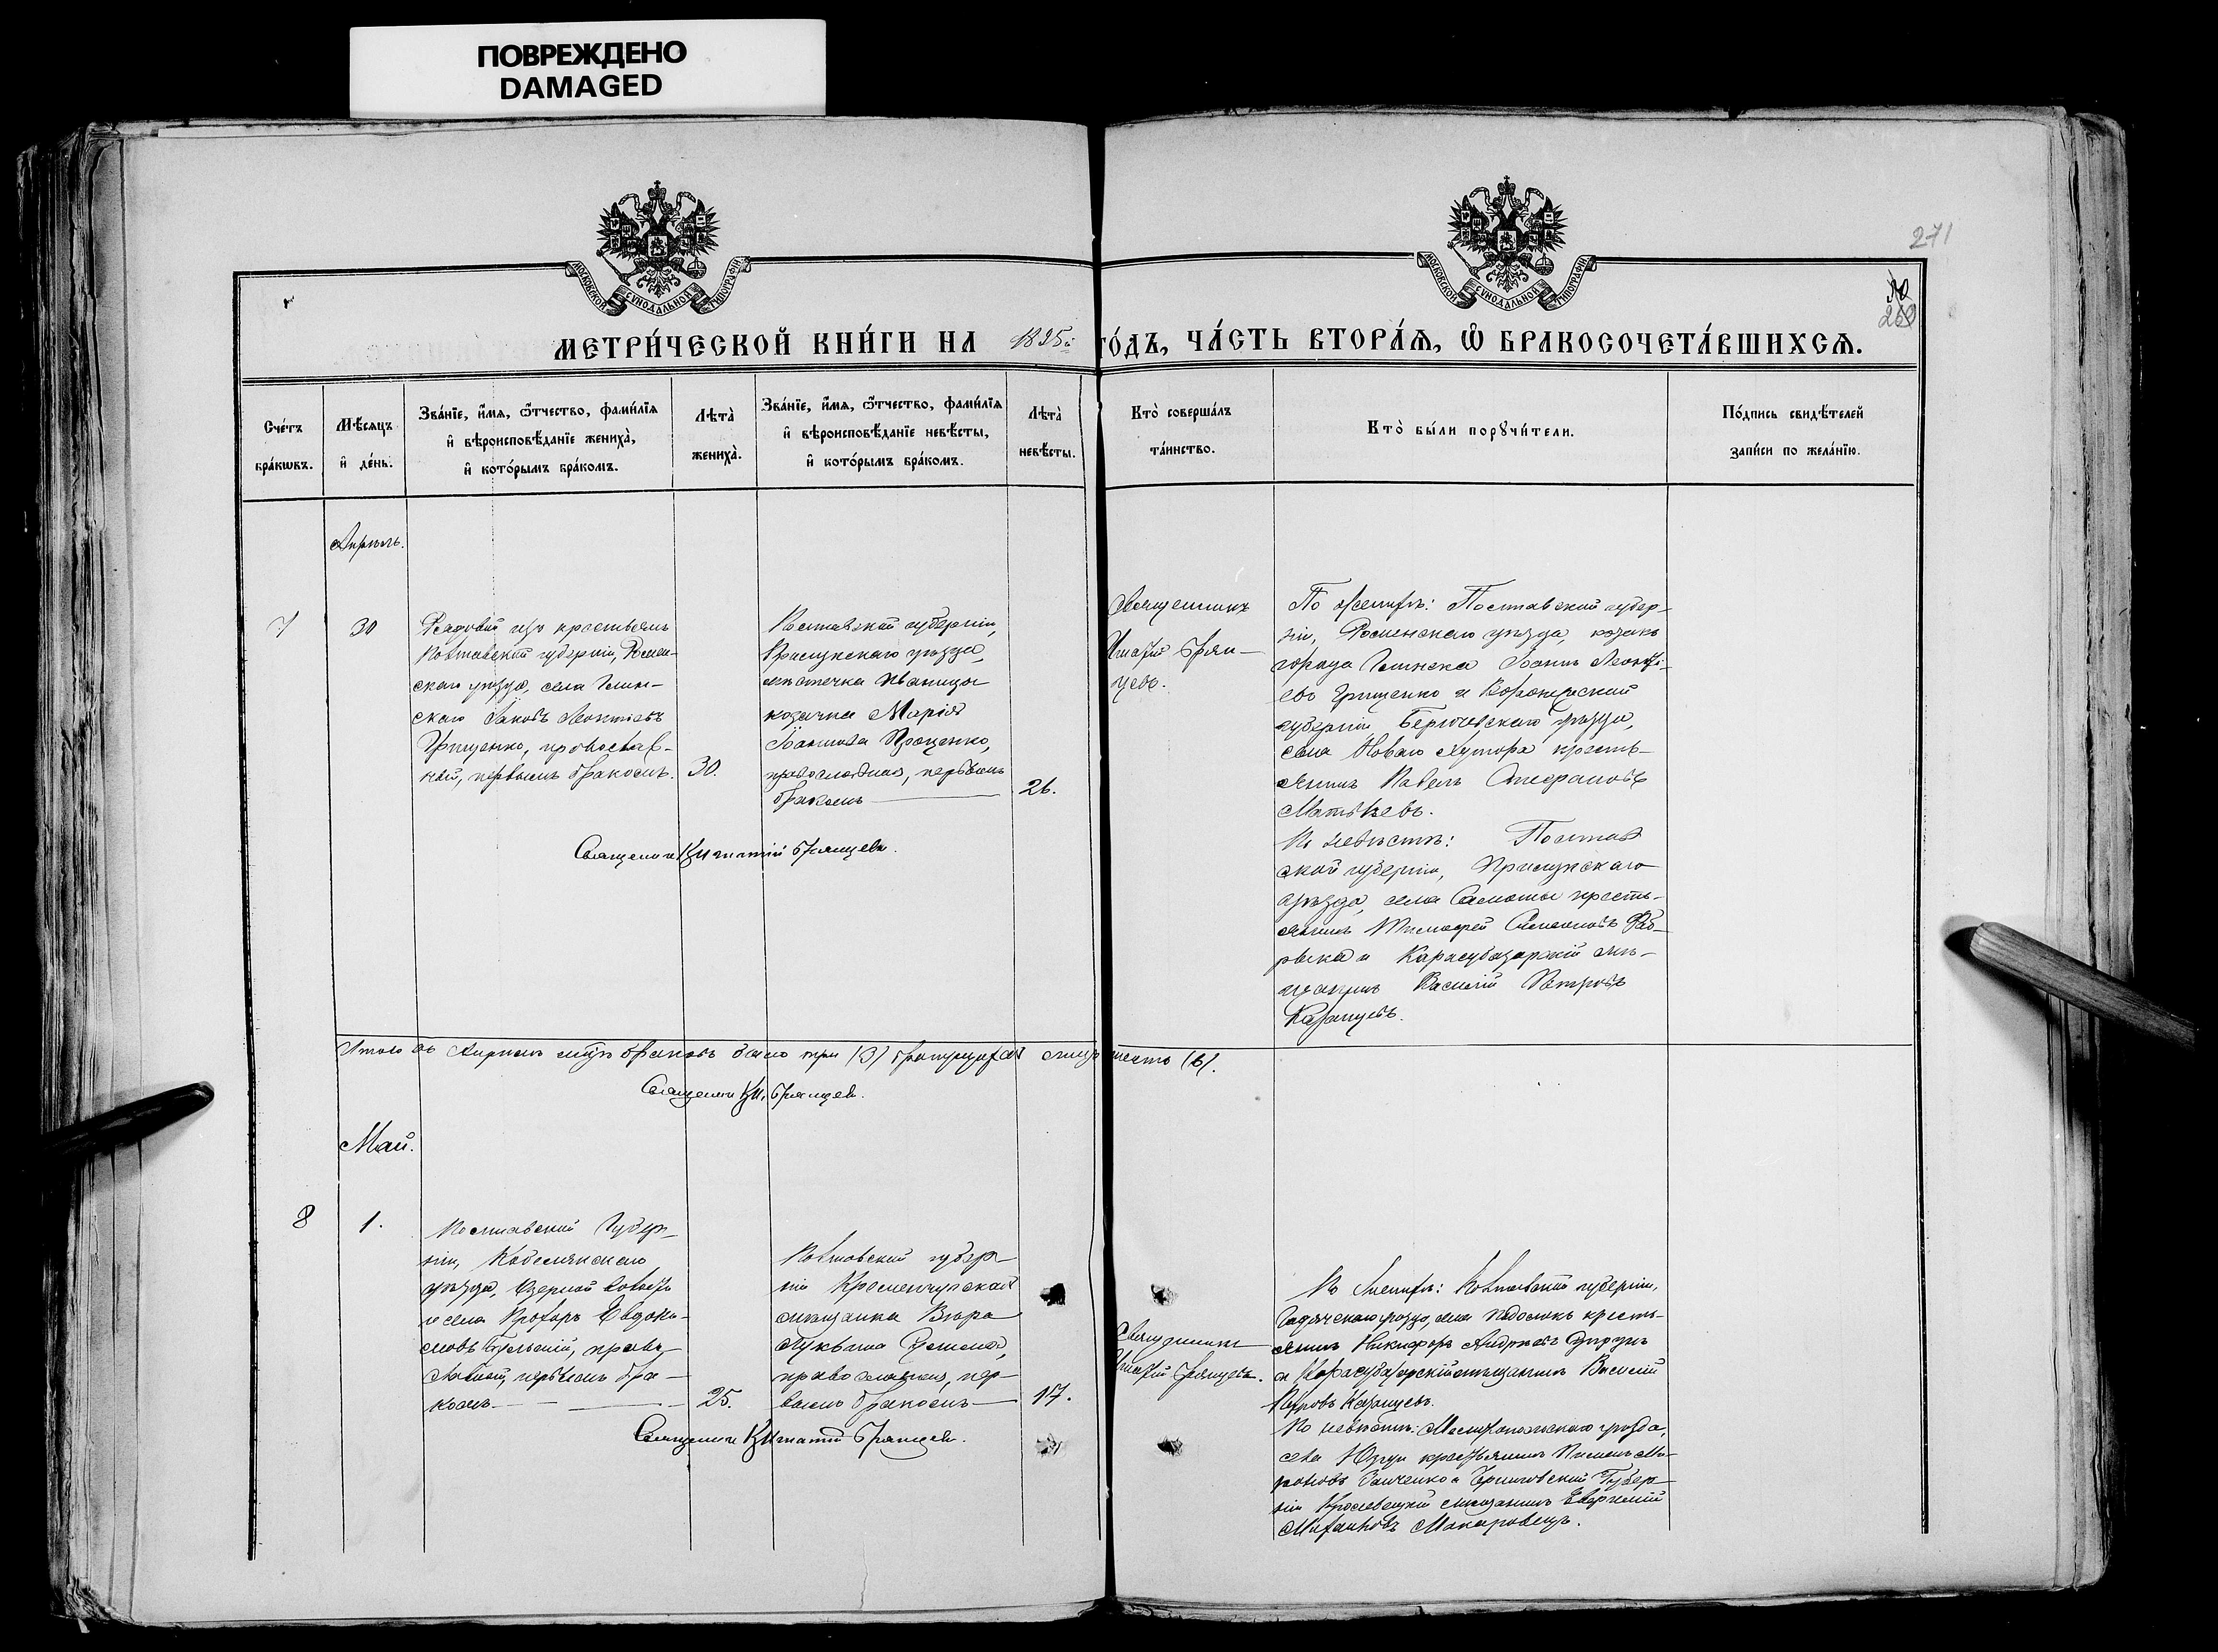 ПОВРЕЖДЕНО
DAMAGED
271
260
МОСКОВСКОЙ СѴНОДАЛЬНОЙ ТИПОГРАФІИ
МОСКОВСКОЙ СѴНОДАЛЬНОЙ ТИПОГРАФІИ
МЕТРИ́ЧЕСКОЙ КНИ́ГИ НА 1895 ГО́ДЪ, ЧА́СТЬ ВТОРА́Ѧ, Ѡ БРАКОСОЧЕТА́ВШИХСѦ.
Сче́тъ
бра́кѡвъ.
Мѣ́сѧцъ
и҆ де́нь.
Зва́нїе, и҆́мѧ, ѻ҆́тчество, фами́лїѧ
и҆ вѣроисповѣ́данїе жениха̀,
и҆ кото́рымъ бра́комъ.
Лѣта̀
жениха̀.
Зва́нїе, и҆́мѧ, ѻ҆́тчество, фами́лїѧ
и҆ вѣроисповѣ́данїе невѣ́сты,
и҆ кото́рымъ бра́комъ.
Лѣта̀
невѣ́сты.
Кто̀ соверша́лъ
та́инство.
Кто̀ бы́ли порꙋчи́тели.
По́дпись свидѣ́телей
запи́си по жела́нїю.
Апрѣль.
7
30
Рядовой изъ крестьянъ
Полтавской губерніи, Ромен-
скаго уѣзда, села Глин-
скаго Іаковъ Леонтіевъ
Грищенко, православ-
ный, первымъ бракомъ.
30.
Полтавской губерніи,
Прилукскаго уѣзда,
мѣстечка Иваницы
козачка Марія
Іоаннова Проценко,
православная, первымъ
бракомъ
26.
Священникъ
Игнатій Брян-
цевъ.
По женихѣ: Полтавской губер-
ніи, Роменскаго уѣзда, козакъ
города Глинска Іоаннъ Леонті-
евъ Грищенко и Воронежской
губерніи Бирюченскаго уѣзда,
села Новаго Хутора кресть-
янинъ Павелъ Стефановъ
Матвѣевъ.
По невѣстѣ: Полтав
ской губерніи, Прилукскаго
уѣзда, села кресть-
янинъ Тимофей Симеоновъ
и Карасубазарскій мѣ-
щанинъ Василій Петровъ
Казанцевъ.
Священникъ Игнатій Брянцевъ.
Итого въ Апрѣлѣ м-цѣ браковъ было три (3) лицъ шесть (6).
Священникъ Иг. Брянцевъ.
Май.
8
1.
Полтавской Губер-
ніи, Кобелякскаго
уѣзда,
и села Прохоръ Евдоки-
мовъ право-
славный, первымъ бра-
комъ
25.
Полтавской губер-
ніи Кременчугская
мѣщанка Вѣра
Лукьяна
православная, пер-
вымъ бракомъ
17.
Священникъ
Игнатій Брянцевъ.
По женихѣ: Полтавской губерніи,
Гадячскаго уѣзда, села кресть-
янинъ Никифоръ Андреевъ
и Карасубазарскій мѣщанинъ Василій
Петровъ Казанцевъ.
По невѣстѣ: Мелитопольскаго уѣзда,
села крестьянинъ Пименъ Ми-
и Черниговской Губер-
ніи Кролевецкій мѣщанинъ Евфимій
Михайловъ Макаровецъ.
Священникъ Игнатій Брянцевъ.